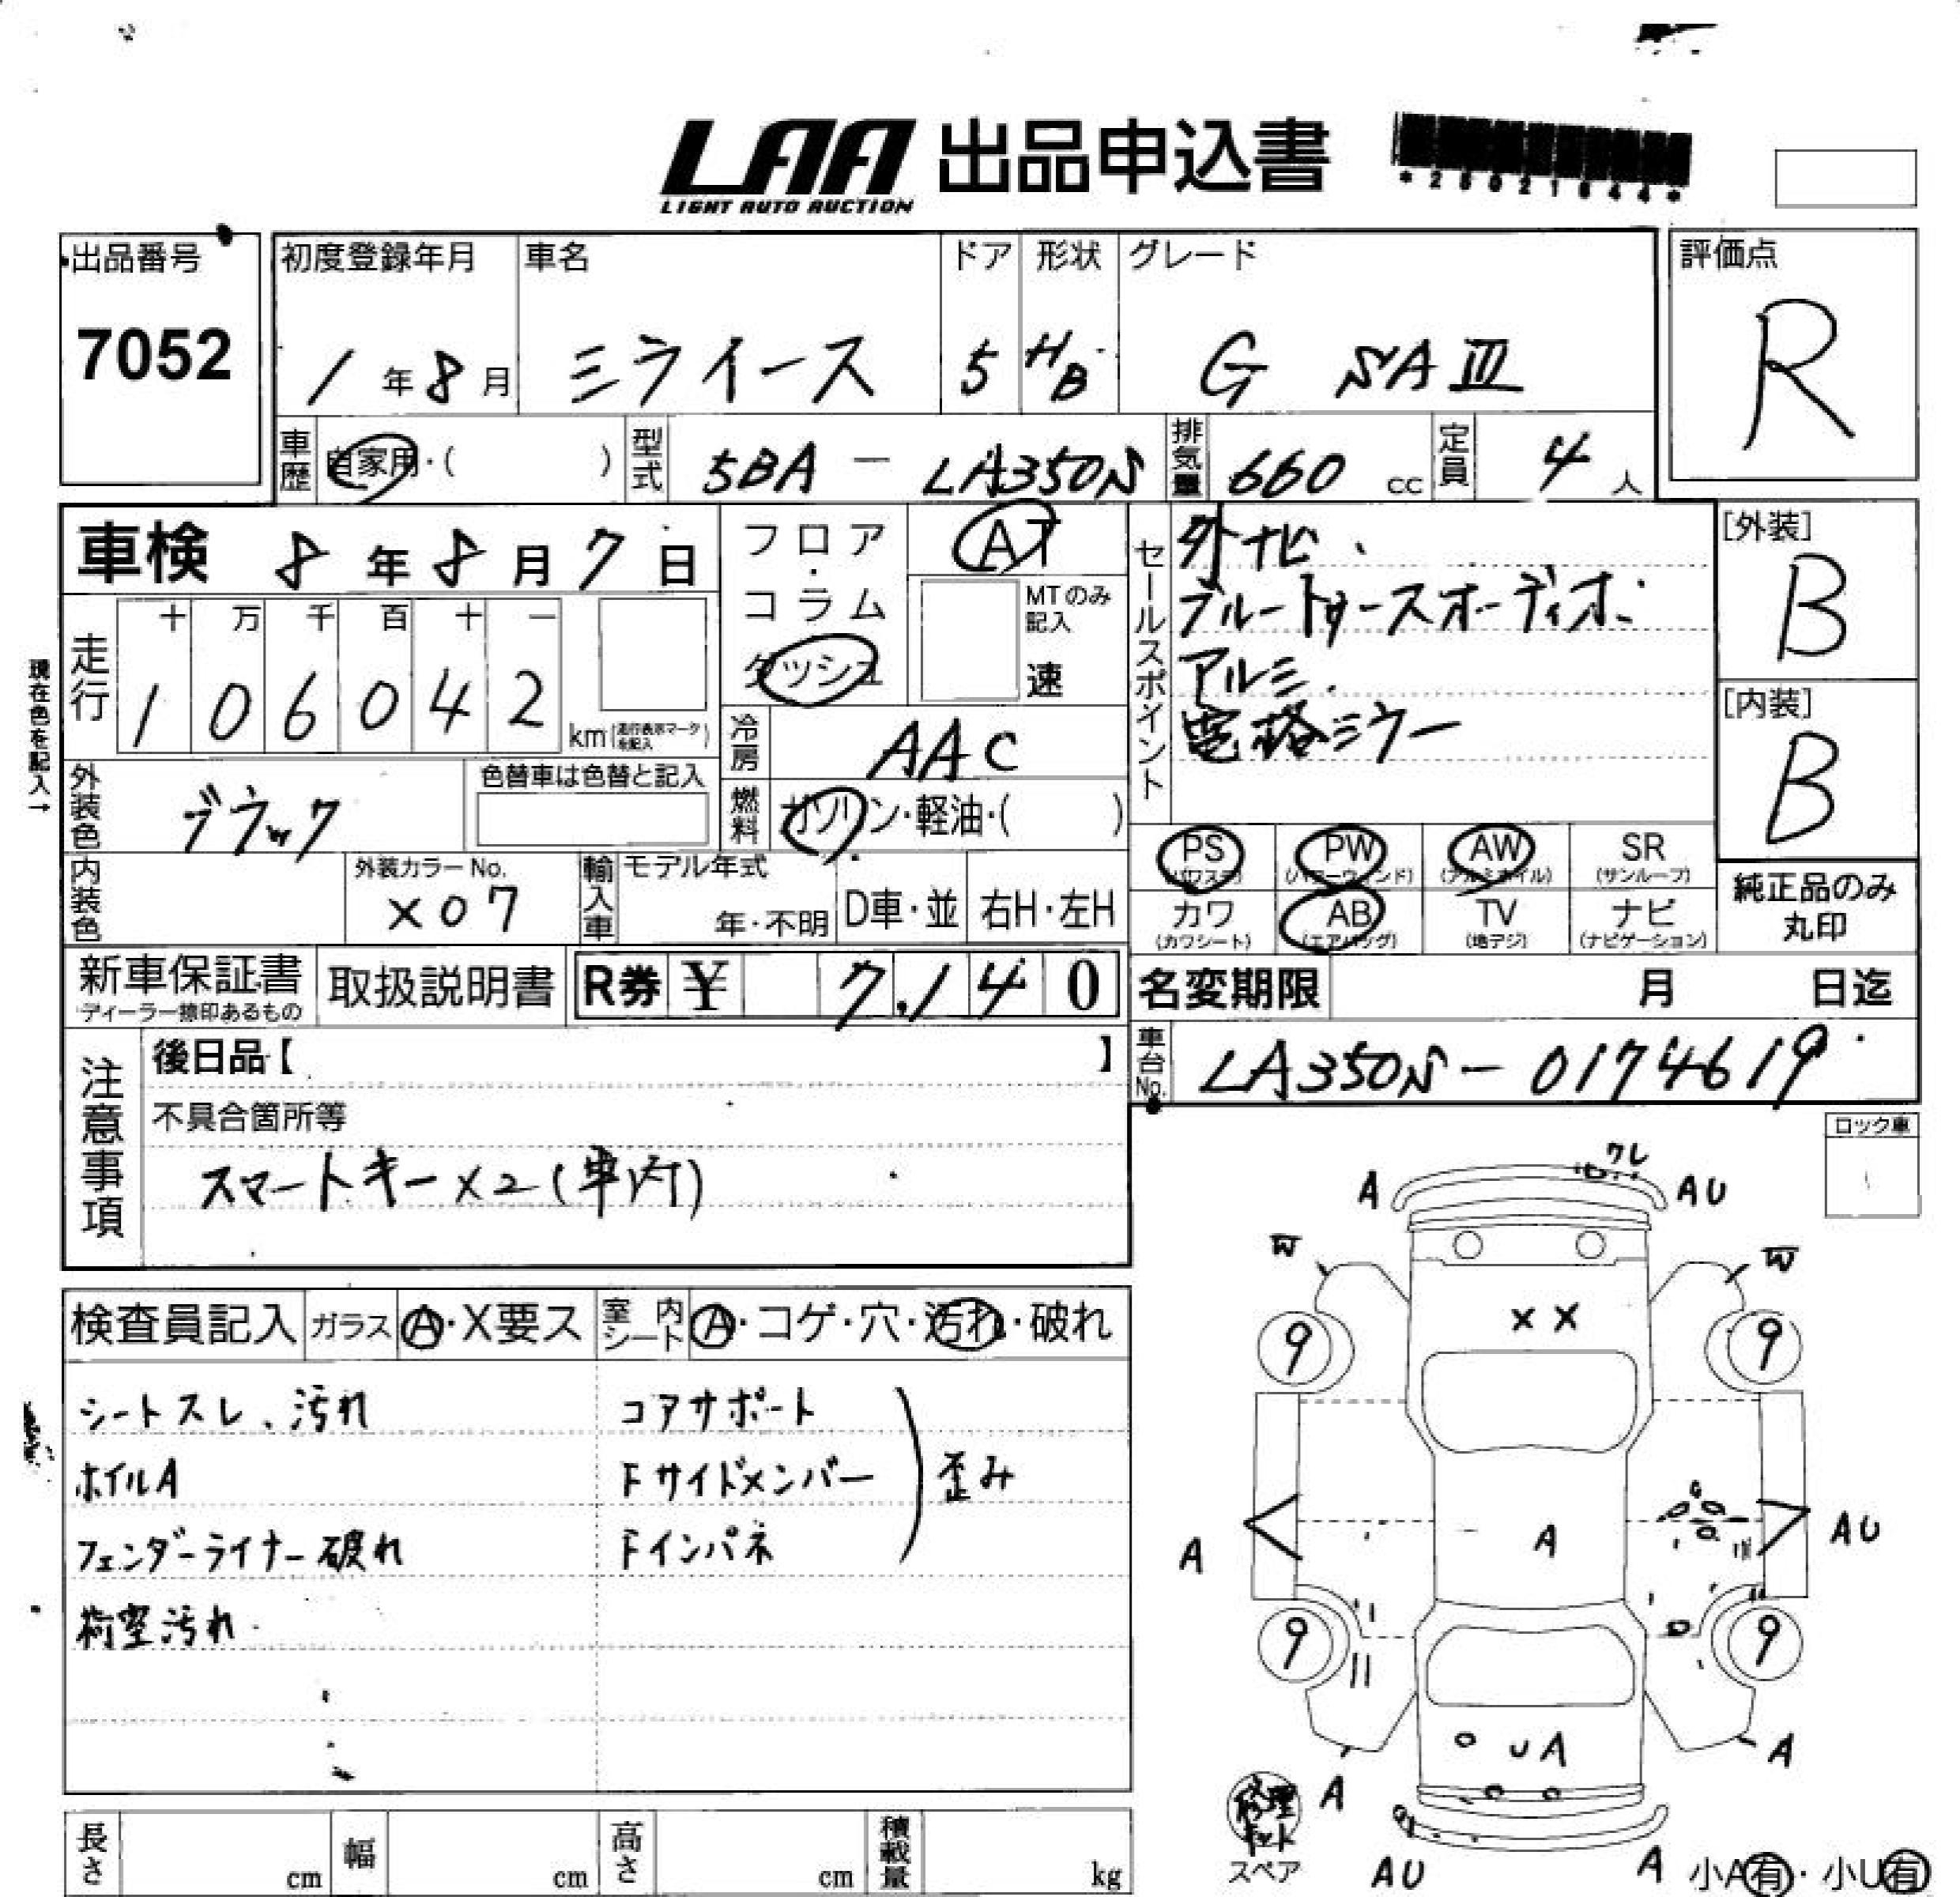 LAA 出品申込書
LIGHT AUTO AUCTION
*28021844*
出品番号
7052
初度登録年月 車名 ドア 形状 グレード
1年8月 ミライース 5 HB G SAIII
評価点
R
車歴 自家用・( ) 型式 5BA - LA350S 排気量 660 cc 定員 4人
車検 8年8月7日
フロア・コラム ダッシュ
AT
MTのみ記入
速
現在色を記入→
走行 十 万 千 百 十 一
1 0 6 0 4 2 km (走行表示マークを記入)
冷房 AAC
燃料 ガソリン・軽油・( )
外装色 ブラック
色替車は色替と記入
内装色
外装カラーNo.
X07
輸入車 モデル年式
年・不明 D車・並 右H・左H
セールスポイント
外ナビ、
ブルートゥースオーディオ
アルミ
電格ミラー
[外装]
B
[内装]
B
PS (パワステ) PW (パワーウィンド) AW (アルミホイル) SR (サンルーフ)
カワ (カワシート) AB (エアバッグ) TV (地デジ) ナビ (ナビゲーション)
純正品のみ丸印
新車保証書
ディーラー捺印あるもの
取扱説明書
R券 ¥ 7,140
名変期限 月 日迄
車台No. LA350S-0174619
注意事項
後日品【 】
不具合箇所等
スマートキー×2(車内)
ロック車
検査員記入 ガラス A・X要ス 室内シート A・コゲ・穴・汚れ・破れ
シートスレ、汚れ
ホイルA
フェンダーライナー破れ
荷室汚れ
コアサポート
Fサイドメンバー
Fインパネ
歪み
A ワレ AU
W W
X X
9 9
A A AU
9 9
U A
A A
修理キット
スペア
AU A
小A有・小U有
長さ cm 幅 cm 高さ cm 積載量 kg